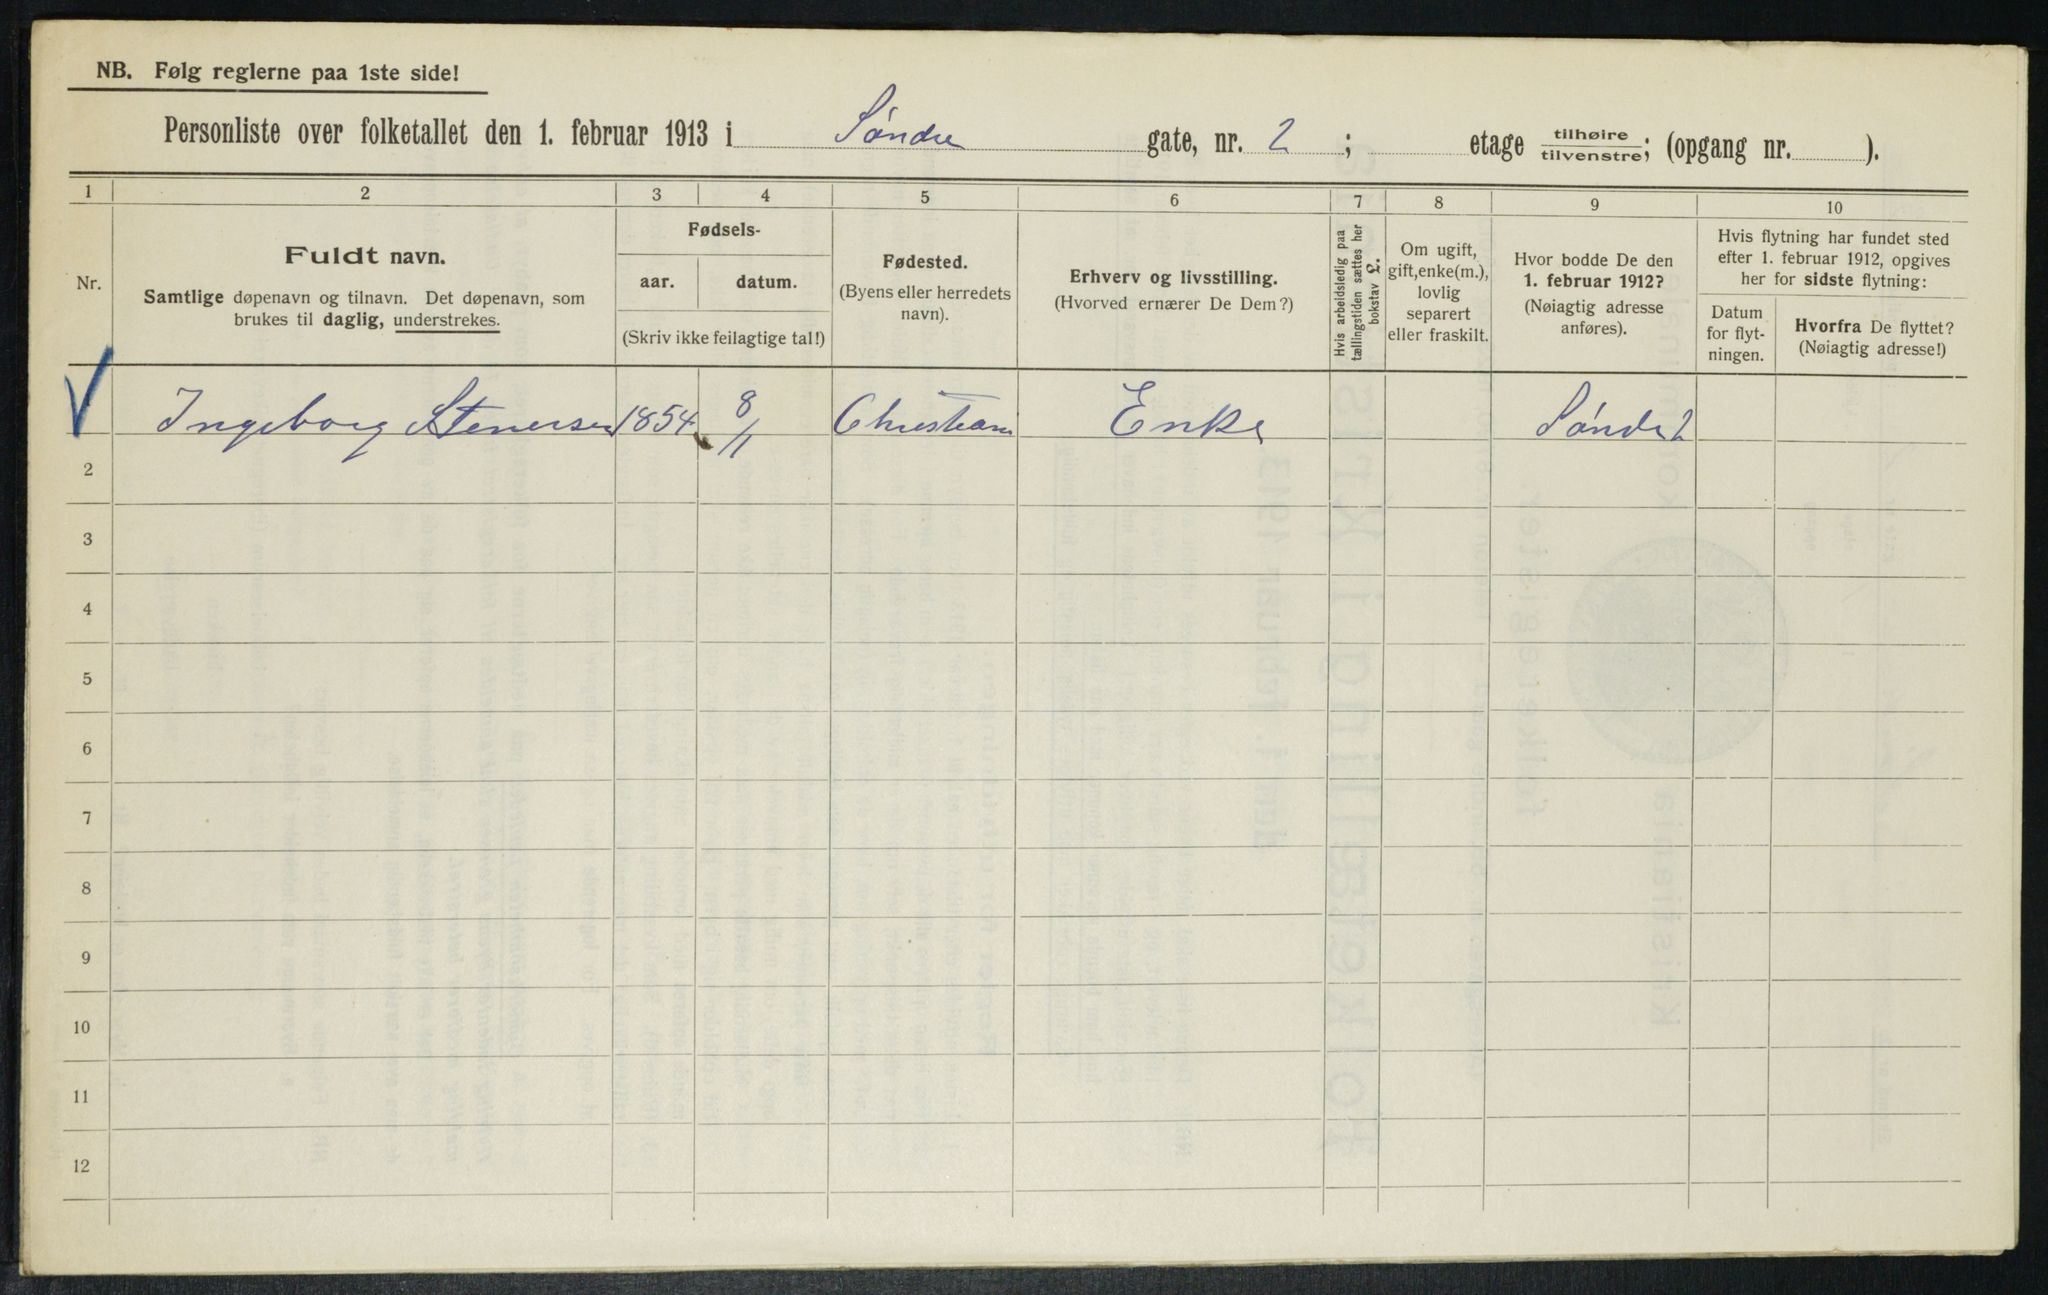 NB. Følg reglerne paa 1ste side!
Personliste over folketallet den 1. februar 1913 i Søndre gate, nr. 2 ; etage tilhøire/tilvenstre; (opgang nr. ).
1 2 3 4 5 6 7 8 9 10
Nr.
Fuldt navn.
Samtlige døpenavn og tilnavn. Det døpenavn, som
brukes til daglig, understrekes.
Fødsels-
aar.
datum.
(Skriv ikke feilagtige tal!)
Fødested.
(Byens eller herredets
navn).
Erhverv og livsstilling.
(Hvorved ernærer De Dem?)
Hvis arbeidsledig paa
tællingstiden sættes her
bokstav L.
Om ugift,
gift, enke(m.),
lovlig
separert
eller fraskilt.
Hvor bodde De den
1. februar 1912?
(Nøiagtig adresse
anføres).
Hvis flytning har fundet sted
efter 1. februar 1912, opgives
her for sidste flytning:
Datum
for flyt-
ningen.
Hvorfra De flyttet?
(Nøiagtig adresse!)
Ingeborg Stenersen 1854 8/11 Christiania Enke Søndre 2
2
3
4
5
6
7
8
9
10
11
12